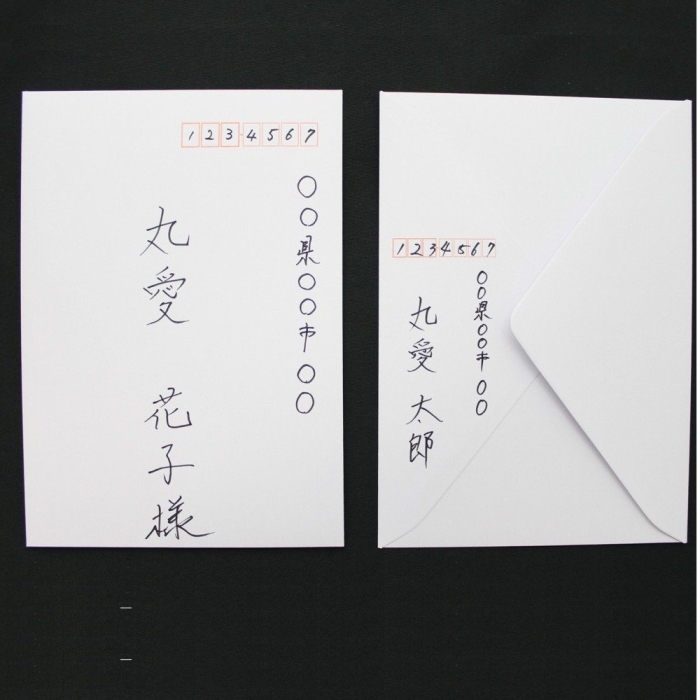 1234567
〇〇県〇〇市〇〇
丸愛 花子様
1234567
〇〇県〇〇市〇〇
丸愛 太郎